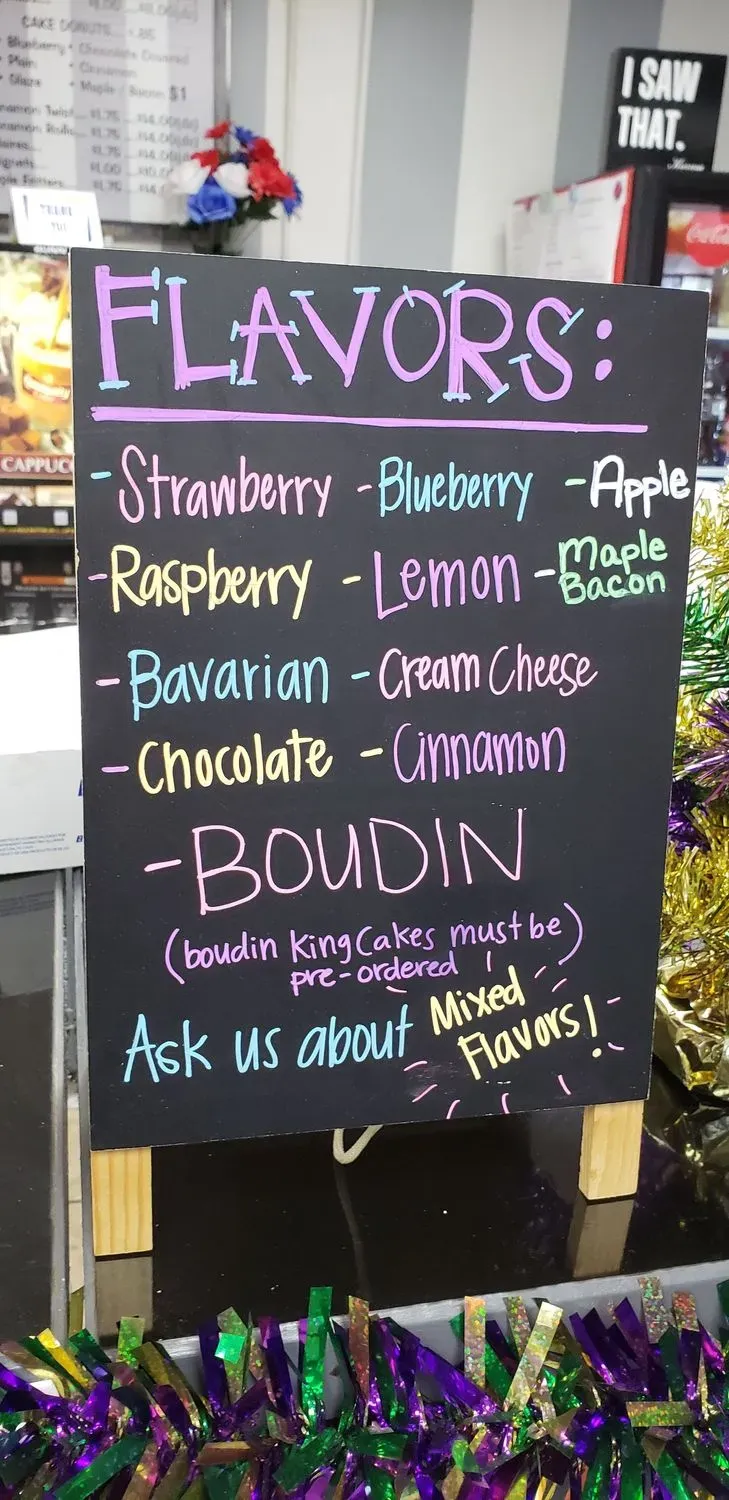 CAKE DONUTS
Blueberry • Chocolate Covered
• Plain • Cinnamon
• Glaze • Maple / Bacon $1
I SAW
THAT.
Coca-Cola
CAPPUC
FLAVORS:
-Strawberry -Blueberry -Apple
-Raspberry -Lemon -Maple
Bacon
-Bavarian -Cream Cheese
-Chocolate -Cinnamon
-BOUDIN
(boudin King Cakes must be)
pre-ordered
Ask us about Mixed
Flavors!